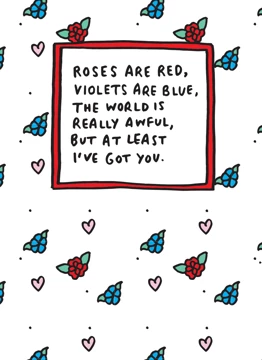 ROSES ARE RED,
VIOLETS ARE BLUE,
THE WORLD IS
REALLY AWFUL,
BUT AT LEAST
I'VE GOT YOU.